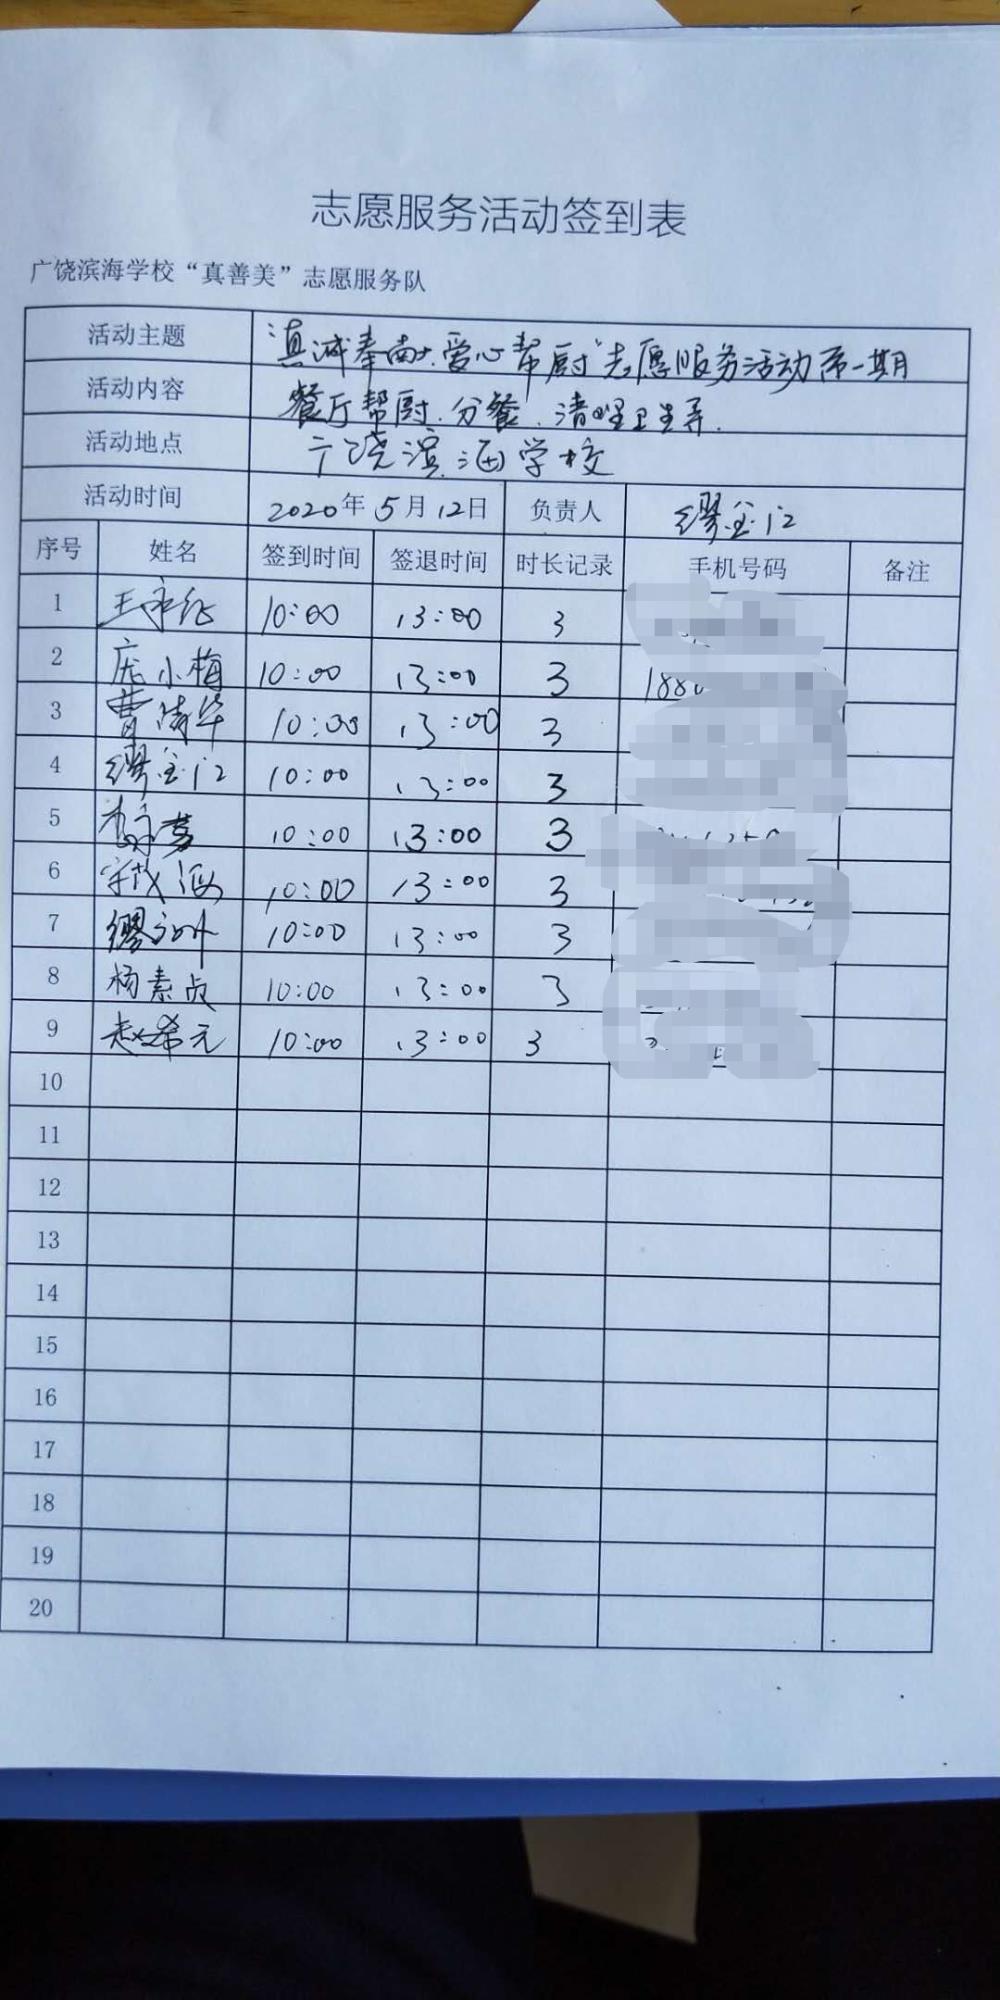 志愿服务活动签到表
广饶滨海学校“真善美”志愿服务队
活动主题 真诚奉献 爱心帮厨”志愿服务活动第一期
活动内容 餐厅帮厨、分餐、清理卫生等.
活动地点 广饶滨海学校
活动时间 2020年5月12日 负责人 缪金江
序号 姓名 签到时间 签退时间 时长记录 手机号码 备注
1 10:00 13:00 3
2 庞小梅 10:00 13:00 3 188
3 曹清华 10:00 13:00 3
4 缪金江 10:00 13:00 3
5 10:00 13:00 3
6 10:00 13:00 3
7 10:00 13:00 3
8 杨素贞 10:00 13:00 3
9 赵希元 10:00 13:00 3
10
11
12
13
14
15
16
17
18
19
20